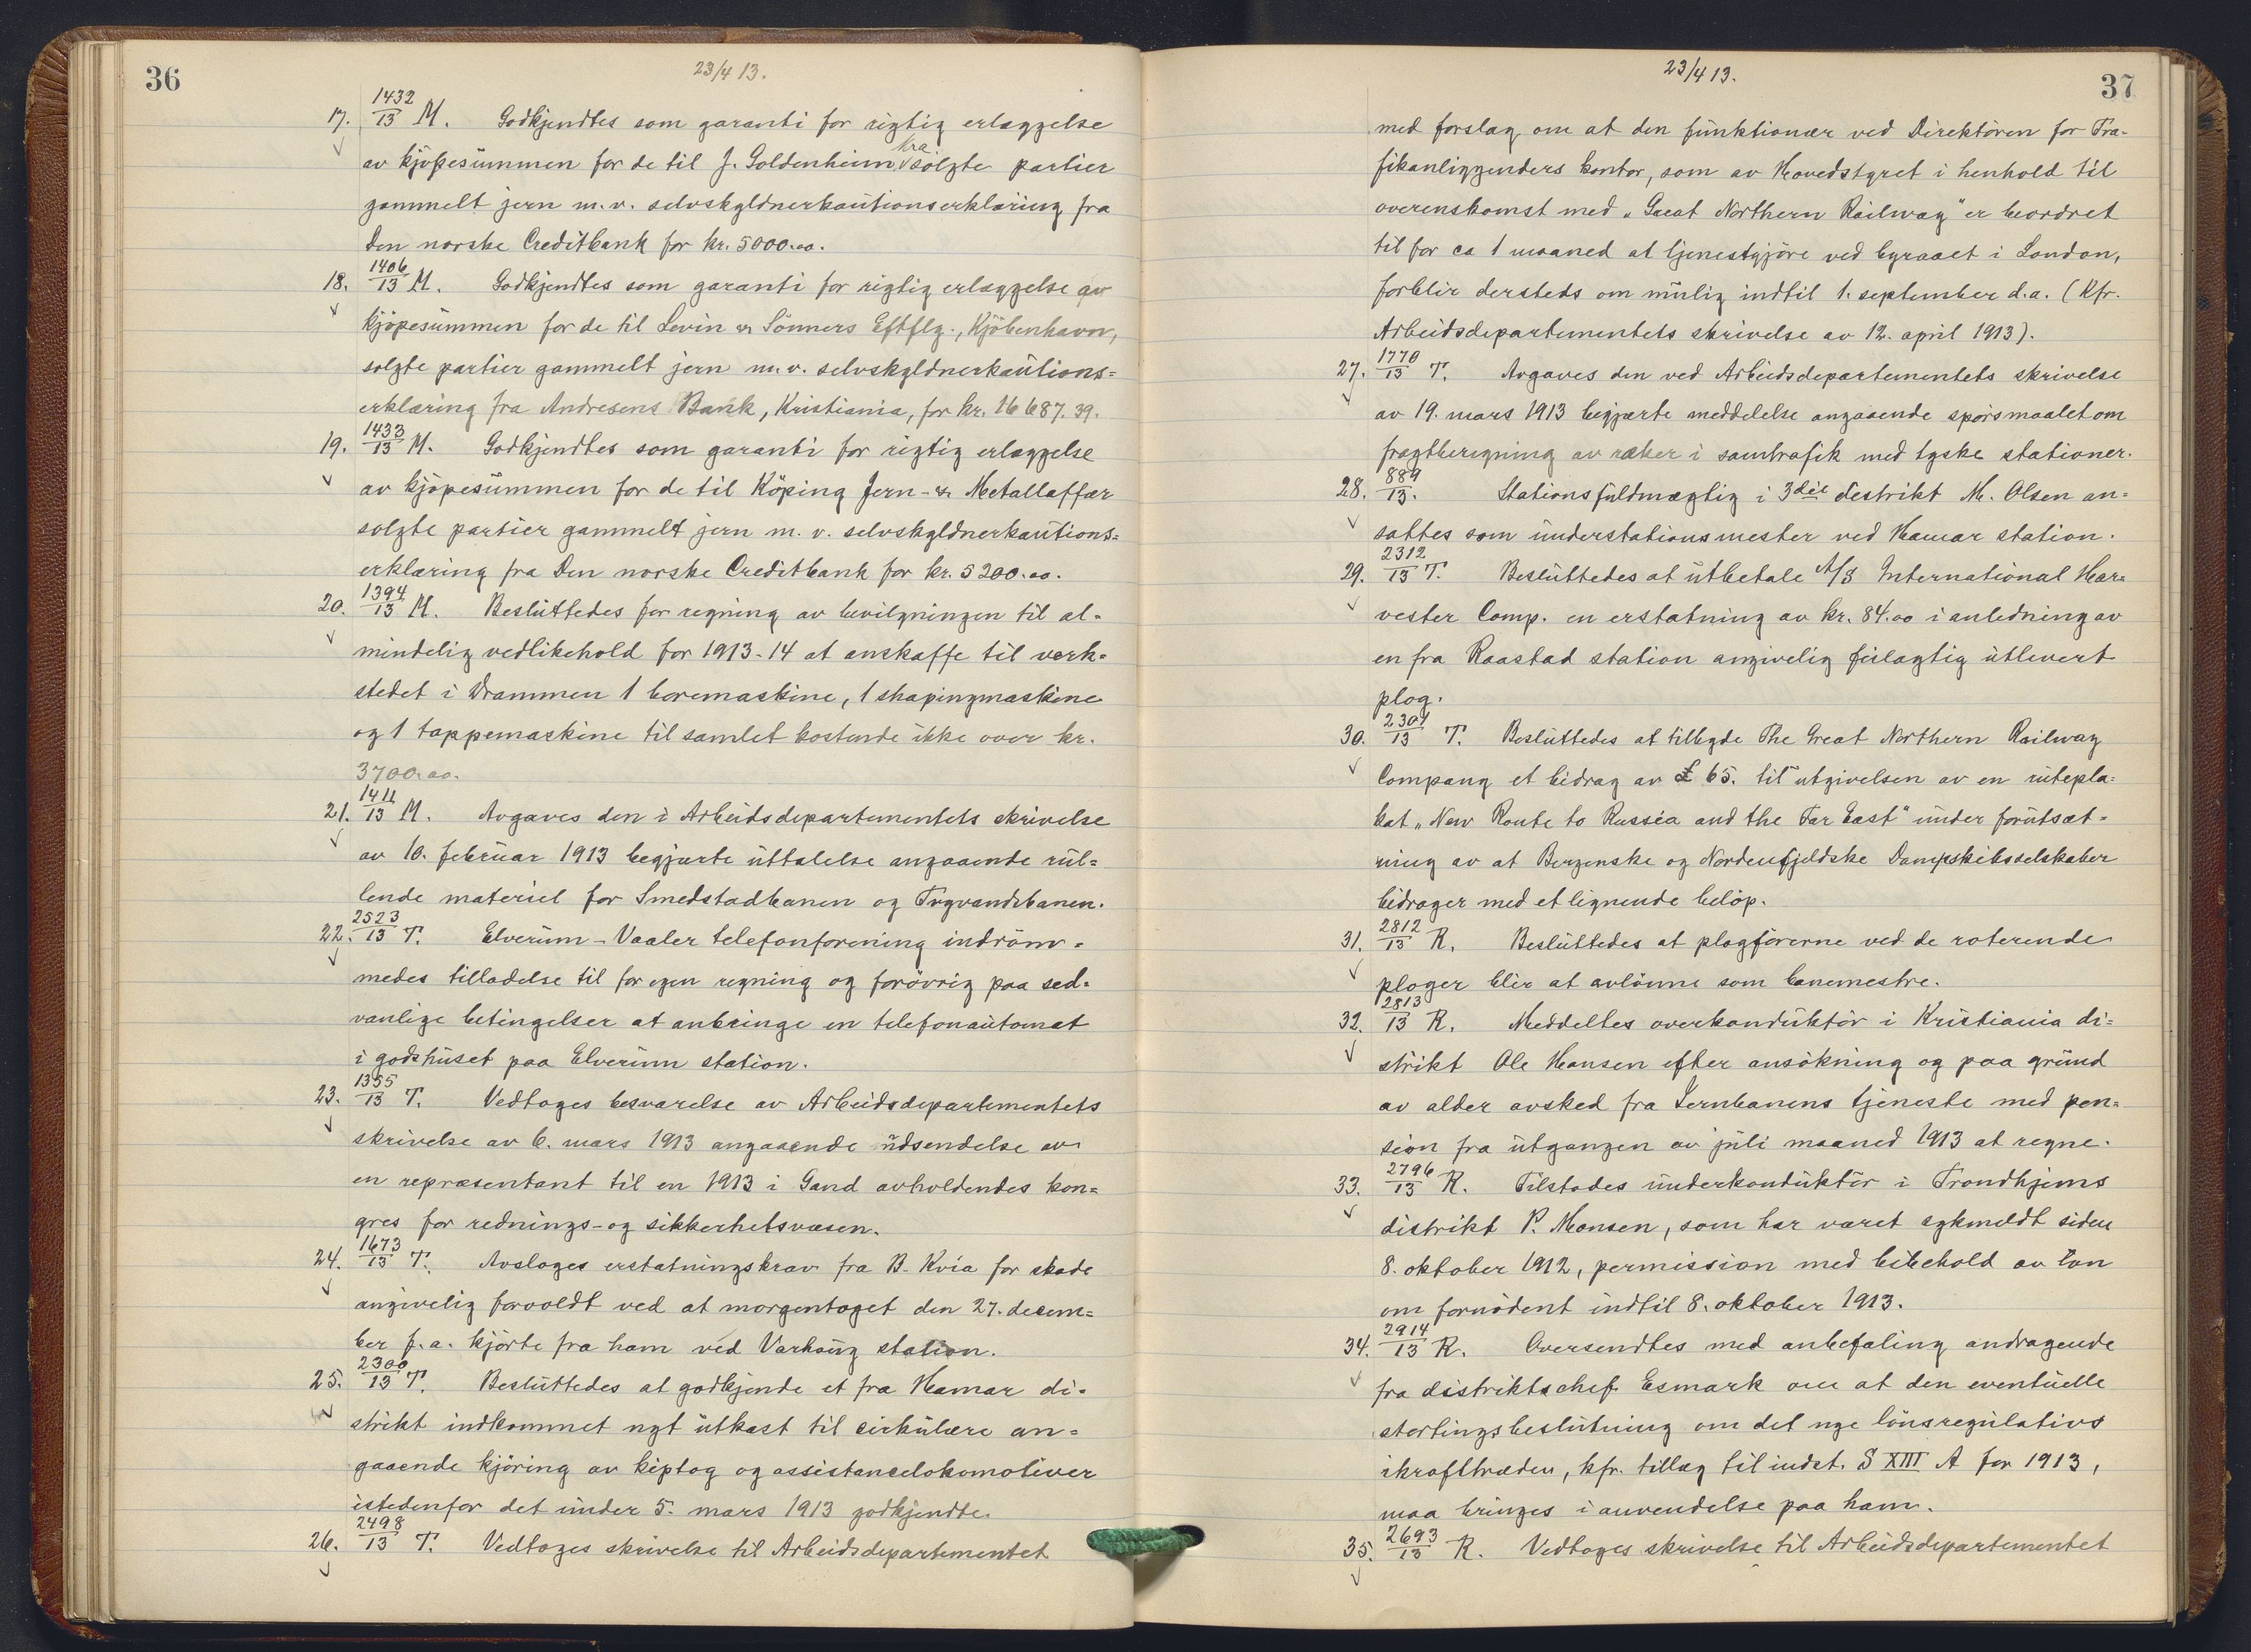 36
23/4 13.
17. 1432/13 M. Godkjendtes som garanti for rigtig erlæggelse
av kjöpesummen for de til J. Goldenheim, Kra solgte partier
gammelt jern m.v. selvskyldnerkautionserklæring fra
Den norske Creditbank for kr. 5000.00.
18. 1406/13 M. Godkjendtes som garanti for rigtig erlæggelse av
kjöpesummen for de til Levin & Sönners Eftflg., Kjöbenhavn,
solgte partier gammelt jern m.v. selvskyldnerkautions=
erklæring fra Andresens Bank, Kristiania, for kr. 16 687.39.
19. 1433/13 M. Godkjendtes som garanti for rigtig erlæggelse
av kjöpesummen for de til Köping Jern- & Metallaffær
solgte partier gammelt jern m.v. selvskyldnerkautions=
erklæring fra Den norske Creditbank for kr. 5200.00.
20. 1394/13 M. Besluttedes for regning av bevilgningen til al=
mindelig vedlikehold for 1913-14 at anskaffe til verk=
stedet i Drammen 1 boremaskine, 1 shapingmaskine
og 1 tappemaskine til samlet kostende ikke over kr.
3700.00.
21. 1411/13 M. Avgaves den i Arbeidsdepartementets skrivelse
av 10. februar 1913 begjærte uttalelse angaaende rul=
lende materiel for Smedstadbanen og Trygvandsbanen.
22. 2523/13 T. Elverum-Vaaler telefonforening indröm=
medes tilladelse til for egen regning og forövrig paa sed=
vanlige betingelser at anbringe en telefonautomat
i godshuset paa Elverum station.
23. 1355/13 T. Vedtoges besvarelse av Arbeidsdepartementets
skrivelse av 6. mars 1913 angaaende utsendelse av
en repræsentant til en 1913 i Gand avholdendes kon=
gres for rednings- og sikkerhetsvæsen.
24. 1673/13 T. Avsloges erstatningskrav fra B. Kvia for skade
angivelig forvoldt ved at morgentoget den 27. decem=
ber f.a. kjörte fra ham ved Varhaug station.
25. 2300/13 T. Besluttedes at godkjende et fra Hamar di=
strikt indkommet nyt utkast til cirkulære an=
gaaende kjöring av kiptog og assistancelokomotiver
istedenfor det under 5. mars 1913 godkjendte.
26. 2498/13 T. Vedtoges skrivelse til Arbeidsdepartementet
23/4 13.
37
med forslag om at den funktionær ved Direktören for Tra-
fikanliggenders kontor, som av Hovedstyret i henhold til
overenskomst med "Great Northern Railway" er beordret
til for ca 1 maaned at tjenestgjöre ved byraaet i London,
forblir dersteds om mulig indtil 1. september d.a. (Kfr.
Arbeidsdepartementets skrivelse av 12. april 1913).
27. 1770/13 T. Avgaves den ved Arbeidsdepartementets skrivelse
av 19. mars 1913 begjærte meddelelse angaaende spörsmaalet om
fragtberegning av ræker i samtrafik med tyske stationer.
28. 889/13. Stationsfuldmægtig i 3die distrikt M. Olsen an=
sattes som understationsmester ved Hamar station.
29. 2312/13 T. Besluttedes at utbetale A/S International Har=
vester Comp. en erstatning av kr. 84.00 i anledning av
en fra Raastad station angivelig feilagtig utlevert
plog.
30. 2301/13 T. Besluttedes at tilbyde The Great Northern Railway
Company et bidrag av £ 65. til utgivelsen av en rutepla=
kat "New Route to Russia and the Far East" under forutsæt=
ning av at Bergenske og Nordenfjeldske Dampskibsselskaber
bidrager med et lignende belöp.
31. 2812/13 R. Besluttedes at plogförerne ved de roterende
ploger blir at avlönne som banemestre.
32. 2813/13 R. Meddeltes overkonduktör i Kristiania di=
strikt Ole Hansen efter ansökning og paa grund
av alder avsked fra Jernbanens tjeneste med pen=
sion fra utgangen av juli maaned 1913 at regne.
33. 2796/13 R. Tilstodes underkonduktör i Trondhjems
distrikt P. Monsen, som har været sykmeldt siden
8. oktober 1912, permission med bibehold av lön
om fornödent indtil 8. oktober 1913.
34. 2914/13 R. Oversendtes med anbefaling andragende
fra distriktschef Esmark om at den eventuelle
stortingsbeslutning om det nye lönsregulativs
ikrafttræden, kfr. tillæg til indst. S XIII A for 1913,
maa bringes i anvendelse paa ham.
35. 2693/13 R. Vedtoges skrivelse til Arbeidsdepartementet